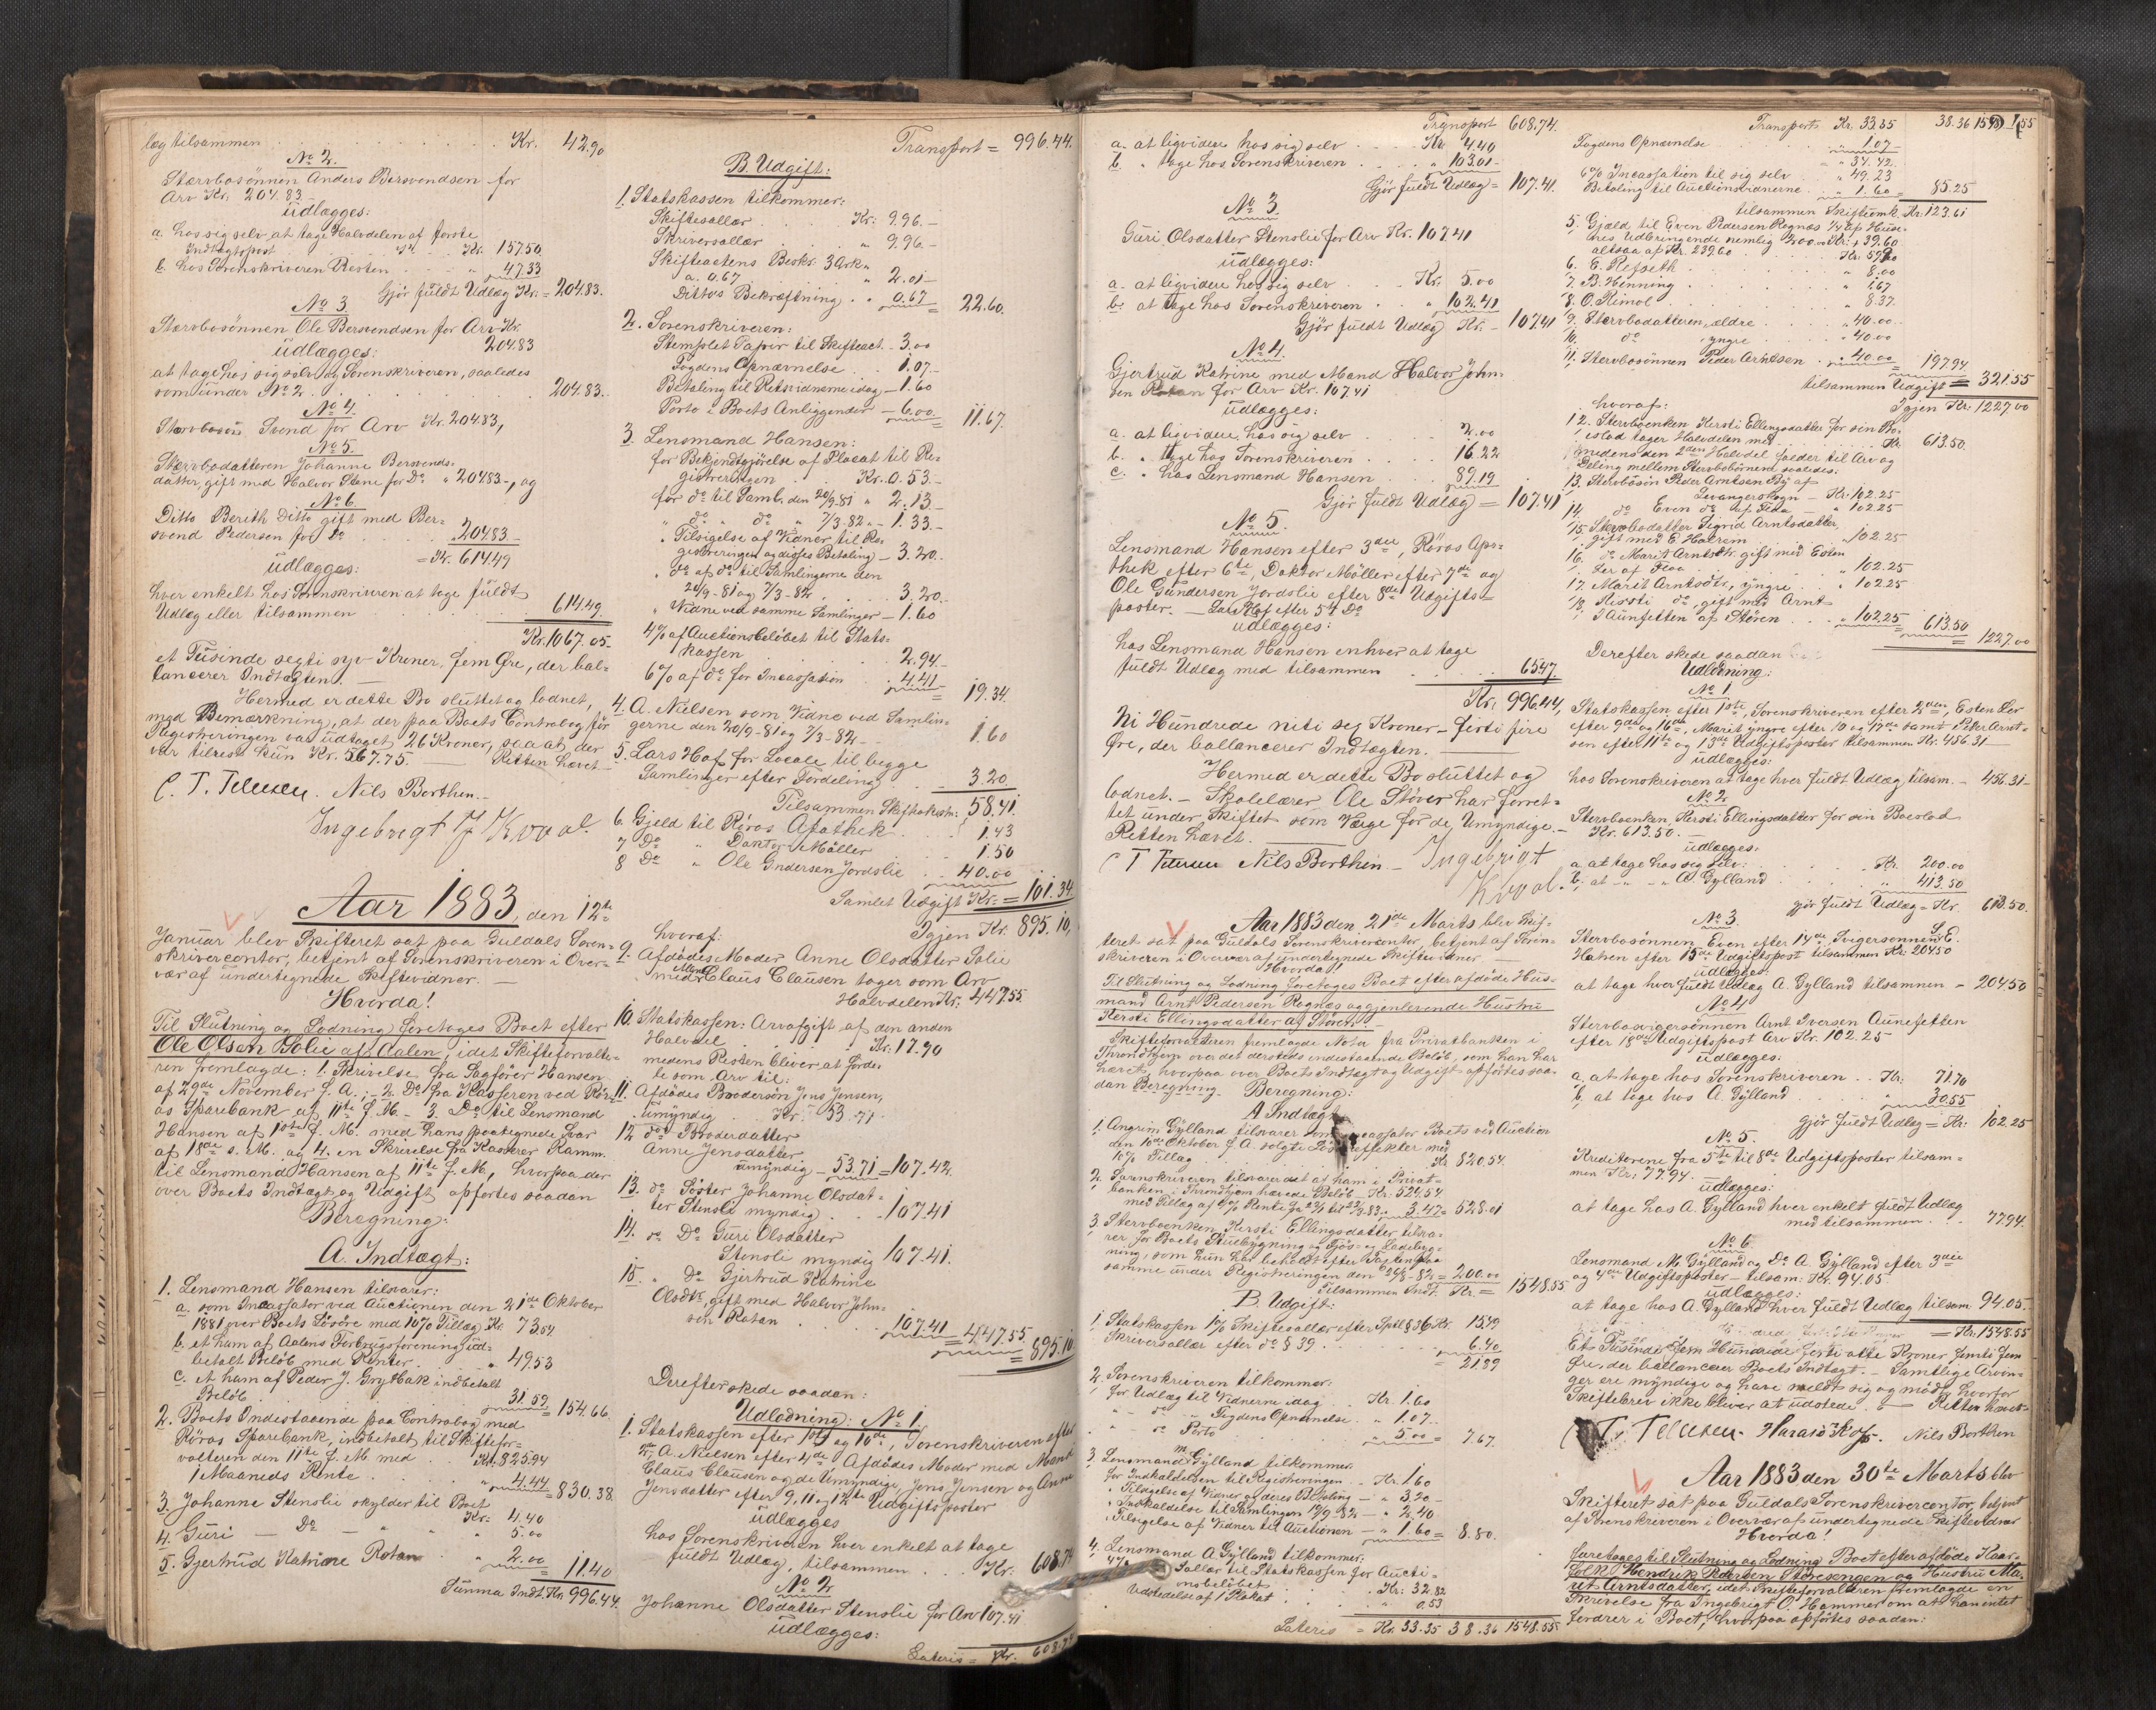 læg tilsammen . . . Kr. 42.90
No 2.
Stærvbosönnen Anders Bersvendsen for
Arv Kr. 204.83.-
udlægges:
a. hos sig selv, at tage Halvdelen af første
Indtægtspost . . Kr. 157.50
b. hos Sorenskriveren Resten . . " 47.33
Gjör fuldt Udlæg Kr. = 204.83.
No 3
Stærvbosönnen Ole Bersvendsen for Arv Kr.
204.83
udlægges:
at tage hos sig selv og Sorenskriveren, saaledes
som under No 2 . . . 204.83.
No 4.
Stærvbosön Svend for Arv Kr. 204.83,
No 5.
Stærvbodatteren Johanne Bersvends-
datter, gift med Halvor Stene for Do " 204.83-, og
No 6.
Ditto Berith Ditto gift med Ber-
svend Pedersen for Do . . 204.83-
= Kr. 614.49
udlægges:
hver enkelt hos Sorenskriveren at tage fuldt
Udlæg eller tilsammen . . . 614.49.
Kr. 1067.05.
et Tusinde segti syv Kroner, fem Øre, der bal-
lancerer Indtægten. —
Hermed er dette Bo sluttet og lodnet,
med Bemærkning, at der paa Boets Contrabog för
Registreringen var udtaget 26 Kroner, saa at der
var tilrest kun Kr. 567.75. — Retten hævet
C. T. Petersen. Nils Borthen.-
Ingebrigt Kvaal.
Aar 1883, den 12te
Januar blev Skifteret sat paa Guldals Soren-
skrivercontor, betjent af Sorenskriveren i Over-
vær af undertegnede Skiftevidner. —
Hvorda!
Til Slutning og Lodning foretoges Boet efter
Ole Olsen Solie af Aalen, idet Skifteforvalte-
ren fremlagde: 1. Skrivelse fra Sagförer Hansen
af 29de November f. A.; - 2. Do fra Kasseren ved Rör-
os Sparebank af 11te f. M. - 3. Do til Lensmand
Hansen af 1ste f. M. med hans paategnede Svar
af 18de s. M. og 4. en Skrivelse fra Kasserer Ramm
til Lensmand Hansen af 11te f. M., hvorpaa der
over Boets Indtægt og Udgift opførtes saadan
Beregning:
A. Indtægt:
1. Lensmand Hansen tilsvarer:
a. som Incassator ved Auctionen den 21de Oktober
1881 over Boets Lösöre med 10% Tillæg Kr. 73.54
b. et ham af Aalens Forbrugsforening ud-
betalt Belöb med Renter . . " 49.53
c. et ham af Peder J. Gryttbak indbetalt
Belöb . . . 31.59 = 154.66.
2. Boets Indestaaende paa Contrabog med
Röros Sparebank, indbetalt til Skiftefor-
valteren den 11te f. M. med . . Kr. 825.94
1 Maaneds Rente . . . " 4.44 = 830.38.
3. Johanne Stenslie skylder til Boet
Kr. 4.40
4. Guri — Do — " " 5.00
5. Gjertrud Katrine Rotan . . " 2.00 = 11.40
Summa Indt. Kr. 996.44.
Transport = 996.44.
B. Udgift:
1. Statskassen tilkommer:
Skiftesallær . . Kr: 9.96.-
Skriversallær . . " 9.96.-
Skifteactens Beskr. 3 Ark "
a. 0.67 . . 2.01-
Dittos Bekræftning . . " 0.67 = 22.60.
2. Sorenskriveren:
Stemplet Papir til Skifteact. - 3.00
Fogdens Opnævnelse . . 1.07.-
Betaling til Retsvidnerne idag - 1.60
Porto i Boets Anliggender - 6.00. = 11.67.
3. Lensmand Hansen:
for Bekjendtgjörelse af Placat til Re-
gistreringen . . Kr. 0.53.-
for do til Saml. den 20/9-81 " 2.13.-
" do " do " 7/3-82 " - 1.33.-
" Tilsigelse af Vidner til Re-
gistreringen og disses Betaling - 3.20.-
" do af do til Samlingerne den
20/9-81 og 7/3-82 . . . 3.20.-
" Vidne ved samme Samlinger - 1.60
4% af Auctionsbelöbet til Stats-
kassen . . . 2.94.-
6% af do for Incassation . . 4.41 = 19.34.
4. A. Nielsen som Vidne ved Samlin-
gerne den 20/9-81 og 7/3-82 - 1.60
5. Lars Hof for Locale til begge
Samlinger efter Fordeling . . 3.20.
Tilsammen Skifteomk: 58.41.
6. Gjeld til Röros Apothek . . 1.43
7 Do " Doktor Möller . . 1.50
8 Do " Ole Gundersen Jordslie . . 40.00
Samlet Udgift Kr: = 101.34
Igjen Kr. 895.10,
hvoraf:
9. Afdödes Moder Anne Olsdatter Solie
med Mand Claus Clausen tager som Arv
Halvdelen Kr. 447.55
10. Statskassen: Arveafgift af den anden
Halvdel . . Kr: 17.90
medens Resten bliver at forde-
le som Arv til:
11. Afdödes Brodersön Jens Jensen,
umyndig . . Kr. 53.71
12 do's Broderdatter
Anne Jensdatter
umyndig - 53.71 = 107.42.
13. do Söster Johanne Olsdat-
ter Stensli myndig . . 107.41
14. do Do Guri Olsdatter
Stensli myndig 107.41.
15. " Do Gjertrud Katrine
Olsdtr, gift med Halvor John-
sen Rotan . . 107.41 = 447.55
= 895.10
Derefter skede saadan:
Udlodning: No 1.
1. Statskassen efter 1ste og 10de, Sorenskriveren efter
2den, A. Nielsen efter 4de, Afdödes Moder med Mand
Claus Clausen og de Umyndige, Jens Jensen og Anne
Jensdatter efter 9, 11 og 12te Udgiftsposter
udlægges
hos Sorenskriveren hver enkelt at tage
fuldt Udlæg, tilsammen . . . Kr: 608.74
No 2
Johanne Olsdatter Stenslie for Arv 107.41
udlægges:
Lateris = Kr. 608.74
Transport 608.74.
a. at liqvidere hos sig selv . . . Kr. 4.40
b. " tage hos Sorenskriveren . . . " 103.01-
Gjör fuldt Udlæg = 107.41.
No 3.
Guri Olsdatter Stenslie for Arv Kr. 107.41
udlægges:
a. at liqvidere hos sig selv . . . Kr. 5.00
b. at tage hos Sorenskriveren . . . " 102.41
Gjör fuldt Udlæg Kr. - 107.41
No 4.
Gjertrud Katrine med Mand Halvor John-
sen Rotan for Arv Kr. 107.41
udlægges:
a. at liqvidere hos sig selv . . . 2.00
b. " tage hos Sorenskriveren . . . 16.22
c. " hos Lensmand Hansen . . . 89.19
Gjör fuldt Udlæg = 107.41
No 5.
Lensmand Hansen efter 3die, Röros Apo-
thek efter 6te, Doktor Möller efter 7de og
Ole Gundersen Jordslie efter 8de Udgifts-
poster. — Lars Hof efter 5te Do
udlægges:
hos Lensmand Hansen enhver at tage
fuldt Udlæg med tilsammen . . . 65.47.
Kr. 996.44,
Ni Hundrede niti sex Kroner - firti fire
Øre, der ballancerer Indtægten. —
Hermed er dette Bo sluttet og
lodnet. - Skolelærer Ole Stöver har forret-
tet under Skiftet som Værge for de Umyndige. -
Retten hævet. —
C T Petersen Nils Borthen - Ingebrigt
Kvaal.
Aar 1883 den 21de Marts blev Skif-
teret sat paa Guldals Sorenskrivercontor, betjent af Soren-
skriveren i Overvær af undertegnede Skiftevidner —
Hvorda!
Til Slutning og Lodning foretoges Boet efter afdöde Hus-
mand Arnt Pedersen Rognæs og gjenlevende Hustru
Kersti Ellingsdatter af Stören. —
Skifteforvalteren fremlagde Nota fra Privatbanken i
Throndhjem over det dersteds indestaaende Belöb, som han har
hævet, hvorpaa over Boets Indtægt og Udgift opförtes saa-
dan Beregning. Beregning:
A Indtægt
1. Angrim Gylland tilsvarer som Incassator Boets ved Auction
den 10de Oktober f. A. solgte Löseffekter med
10% Tillæg . . . Kr 820.54.
2. Sorenskriveren tilsvarer det af ham i Privat-
banken i Throndhjem hævede Belöb - Kr. 524.54
med Tillæg af % Rente fra 23/1 til 22/3-83 . . 3.47 = 528.01
3. Stervboenken Kersti Ellingsdatter tilsva-
rer for Boets Stuebygning og Fjös- og Ladebyg-
ning, som hun har beholdt efter Taxten paa
samme under Registreringen den 26/8-82 = 200.00
Tilsammen Indt. Kr. = 1548.55
B. Udgift:
1. Statskassen 1% Skiftesallær efter Sptl § 36 Kr. 15.49
Skriversallær efter do § 39 . . . 6.40
= 21.89
2. Sorenskriveren tilkommer:
for Udlæg til Vidnerne idag . . Kr. 1.60
" do " Fogdens Opnævnelse . . " 1.07.
" do Porto . . . " 5.00 = 7.67.
3. Lensmand M. Gylland tilkommer
for Indkaldelsen til Registreringen . . Kr. 1.60
" Tilsigelse af Vidner og deres Betaling - " 3.20 -
" Indkaldelse til Samlingen 19/9-82 - " 2.40
" Tilsigelse af Vidner til Auctionen - " 1.60 = 8.80.
4. Lensmand A. Gylland tilkommer:
4% Sallær til Statskassen for Aucti-
onsbelöbet . . . Kr: 32.82
Udstedelse af 1 Plakat . . " 0.53
Lateris = Kr. 33.35 38.36 1548.55
Transport Kr. 33.35 38.36 1548.55
Fogdens Opnævnelse . . . 1.07
= " 34.42
6% Incassation til sig selv . . " 49.23
Betaling til Auctionsvidnerne . . " 1.60 = 85.25
tilsammen Skifteomk. Kr. 123.61
5. Gjæld til Even Pedersen Rognæs
altsaa af Kr. 239.60
6. E. Refseth . . . " 8.00
7. B. Henning . . . " 1.67
8. O. Rimol . . . " 8.37.
9. Stervbodatteren, ældre . . . " 40.00
10. do , yngre . . . " 40.00
11. Stervbosönnen Peder Arntsen . . " 40.00 = 197.94
tilsammen Udgift = 321.55
Igjen Kr. 1227.00
hvoraf:
12. Stervboenken Kersti Ellingsdatter for sin Bo-
eslod tager Halvdelen med . . Kr. 613.50.
medens den 2den Halvdel falder til Arv og
Deling mellem Stervbobörnene saaledes:
13. Stervbosön Peder Arntsen By af
Levangerskogn - Kr: 102.25
14. do Even do af Flaa - " 102.25
15. Stervbodatter Sigrid Arntsdatter,
gift med E. Halsem . . " 102.25
16. do Marit Arntsdtr. gift med Esten
Ler af Flaa . . " 102.25
17. Marit Arntsdtr, yngre . . " 102.25
18. Kersti do, gift med Arnt
Iaunfetten af Stören . . . " 102.25 = 613.50
= 1227.00
Derefter skede saadan
Udlodning:
No 1
Statskassen efter 1ste, Sorenskriveren efter 2den, Esten Ler
efter 9de og 16de, Marit yngre efter 10 og 17de samt Peder Arnt-
sen efter 11te og 13de Udgiftsposter tilsammen Kr. 456.31 —
udlægges:
hos Sorenskriveren at tage hver fuldt Udlæg, tilsam. - 456.31-
No 2
Stervboenken Kersti Ellingsdatter for sin Boeslod
Kr. 613.50. —
udlægges:
a. at tage hos sig selv: . . . Kr. 200.00
b, at — " — " A. Gylland . . . " 413.50
gjör fuldt Udlæg = Kr. 613.50.
No 3.
Stervbosönnen Even efter 14de, Svigersönnen L. E.
Halsen efter 15de Udgiftspost tilsammen Kr. 204.50
udlægges:
at tage hver fuldt Udlæg A. Gylland tilsammen - 204.50
No 4
Stervbosvigersönnen Arnt Iversen Aunefetten
efter 18de Udgiftspost Arv Kr. 102.25
udlægges:
a. at tage hos Sorenskriveren . . Kr: 71.70
b, at tage hos A. Gylland . . . 30.55
Gjör fuldt Udlæg = Kr: 102.25
No 5.
Kreditorerne fra 5te til 8de Udgiftsposter tilsam-
men Kr. 77.94.
udlægges:
at tage hos A. Gylland hver enkelt fuldt Udlæg
med tilsammen . . . 77.94.
No 6
Lensmand M. Gylland og Do A. Gylland efter 3die
og 4de Udgiftsposter - tilsam: Kr. 94.05
udlægges:
at tage hos A. Gylland hver fuldt Udlæg tilsam. 94.05.
= Kr. 1548.55
Et Tusinde fem Hundrede firti otte Kroner, femti fem
Øre, der ballancerer Boets Indtægt. - Samtlige Arvin-
ger ere myndige og have meldt sig og mödt, hvorfor
Skiftebrev ikke bliver at udstede. — Retten hævet-
C. T. Petersen - Harald Hof. Nils Borthen
Aar 1883 den 30te Marts blev
Skifteret sat paa Guldals Sorenskrivercontor, betjent
af Sorenskriveren i Overvær af undertegnede Skiftevidner
Hvorda!
foretoges til Slutning og Lodning Boet efter afdöde Kaar-
folk Hendrik Pedersen Störesengen og Hustru Ma-
rit Arntsdatter, idet Skifteforvalteren fremlagde en
Skrivelse fra Ingebrigt O. Hammer om at han intet
fordrer i Boet, hvorpaa opförtes saadan: